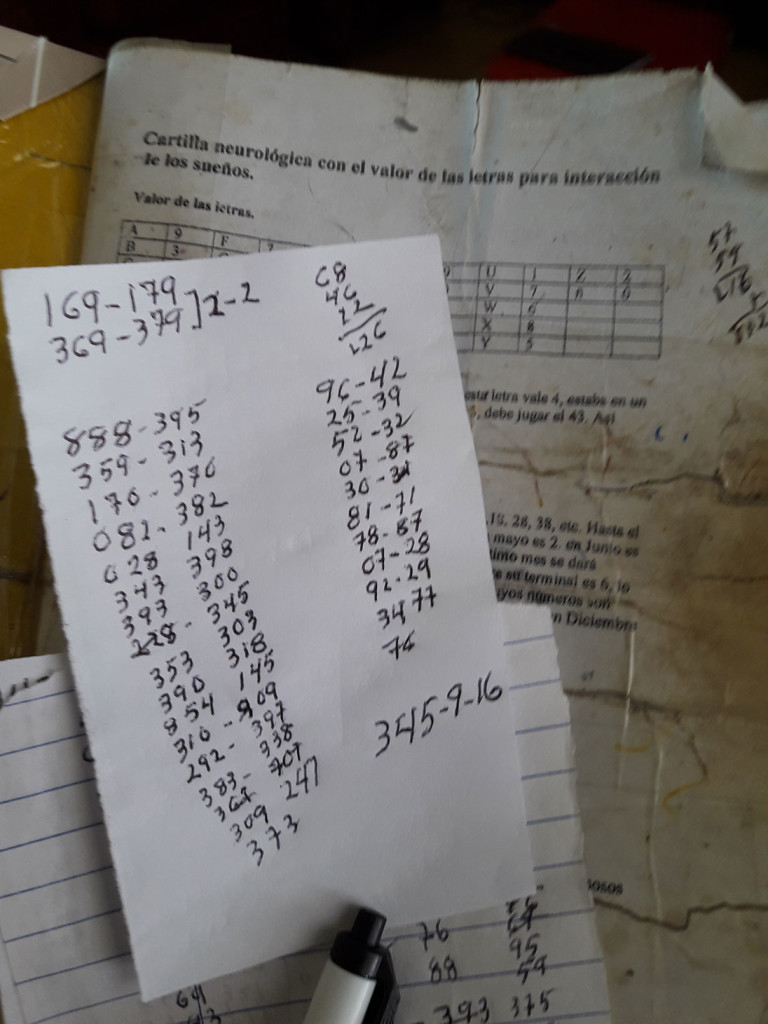 Cartilla neurológica con el valor de las letras para interacción
de los sueños.
Valor de las letras.
A 9 F
B 3
U 1 Z 2
V 7
W 6
X 8
Y 5
esta letra vale 4, estaba en un
debe jugar el 43. Así
18, 28, 38, etc. Hasta el
mayo es 2. en Junio es
timo mes se dará
e su terminal es 6, lo
yos números son
n Diciembre
iosos
57
59
116
169-179
369-379] x-2
68
46
22
126
888-395
359-313
170-370
082-382
028 143
343 398
393 300
228-345
353 303
390 318
854 145
310-909
292-397
383-338
367 707
309 247
373
96-42
25-39
52-32
07-87
30-31
81-71
78-87
07-28
92-29
34 77
76
345-9-16
76
88 95
59
393 375